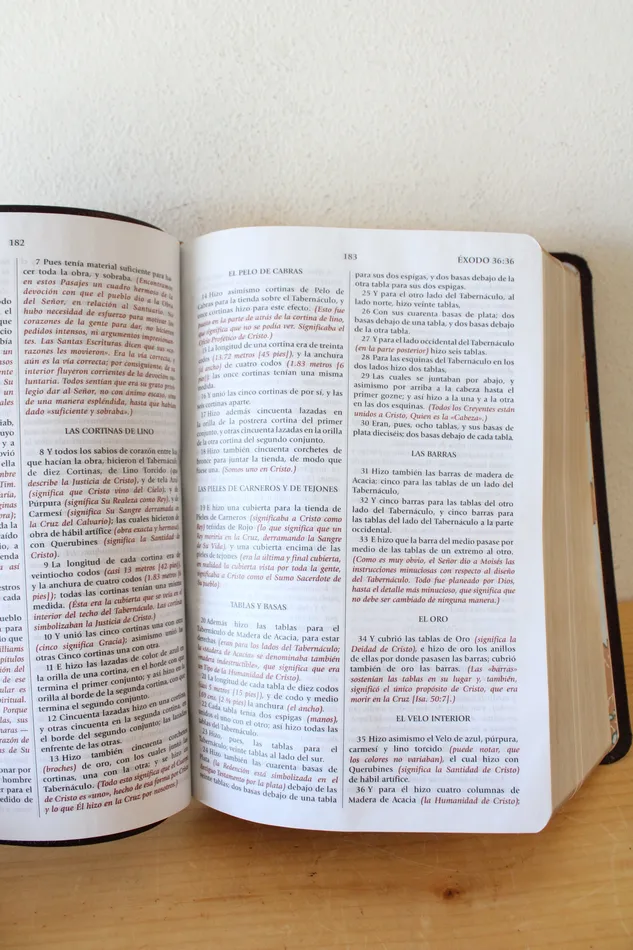 182
7 Pues tenía material suficiente para ha-
cer toda la obra, y sobraba. (Encontramos
en estos Pasajes un cuadro hermoso de la
devoción con que el pueblo dio a la Obra
del Señor, en relación al Santuario. No
hubo necesidad de esfuerzo para motivar los
corazones de la gente para dar, no hicieron
pedidos intensos, ni argumentos impresionan-
tes. Las Santas Escrituras dicen que sus "co-
razones les movieron». Era la vía correcta, y
aún es la vía correcta; por consiguiente, de su
interior fluyeron corrientes de la devoción vo-
luntaria. Todos sentían que era su grato privi-
legio dar al Señor, no con ánimo escaso, sino
de una manera espléndida, hasta que habían
dado «suficiente y sobraba».)
LAS CORTINAS DE LINO
8 Y todos los sabios de corazón entre los
que hacían la obra, hicieron el Tabernáculo
de diez Cortinas, de Lino Torcido (que
describe la Justicia de Cristo), y de tela Azul
(significa que Cristo vino del Cielo), y de
Púrpura (significa Su Realeza como Rey), y de
Carmesí (significa Su Sangre derramada en
la Cruz del Calvario); las cuales hicieron de
obra de hábil artífice (obra exacta y hermosa),
con Querubines (significa la Santidad de
Cristo).
9 La longitud de cada cortina era de
veintiocho codos (casi 13 metros [42 pies]),
y la anchura de cuatro codos (1.83 metros [6
pies]); todas las cortinas tenían una misma
medida. (Ésta era la cubierta que se veía en el
interior del techo del Tabernáculo. Las cortinas
simbolizaban la Justicia de Cristo.)
10 Y unió las cinco cortinas una con otra
(cinco significa Gracia); asimismo unió las
otras Cinco cortinas una con otra.
11 E hizo las lazadas de color de azul en
la orilla de una cortina, en el borde con que
termina el primer conjunto; y así hizo en la
orilla al borde de la segunda cortina, con que
termina el segundo conjunto.
12 Cincuenta lazadas hizo en una cortina,
y otras cincuenta en la segunda cortina, en
el borde del segundo conjunto; las lazadas
enfrente de las otras.
13 Hizo también cincuenta corchetes
(broches) de oro, con los cuales juntó las
cortinas, una con la otra; y se hizo un
Tabernáculo. (Todo esto significa que el Cuerpo
de Cristo es «uno», hecho de esa forma por Cristo
y lo que Él hizo en la Cruz por nosotros.)
183
ÉXODO 36:36
EL PELO DE CABRAS
14 Hizo asimismo cortinas de Pelo de
Cabras para la tienda sobre el Tabernáculo, y
once cortinas hizo para este efecto. (Esto fue
puesto en la parte de atrás de la cortina de lino,
que significa que no se podía ver. Significaba el
Oficio Profético de Cristo.)
15 La longitud de una cortina era de treinta
codos (13.72 metros [45 pies]), y la anchura
de cuatro codos (1.83 metros [6
pies]); las once cortinas tenían una misma
medida.
16 Y unió las cinco cortinas de por sí, y las
seis cortinas aparte.
17 Hizo además cincuenta lazadas en
la orilla de la postrera cortina del primer
conjunto, y otras cincuenta lazadas en la orilla
de la otra cortina del segundo conjunto.
18 Hizo también cincuenta corchetes de
bronce para juntar la tienda, de modo que
fuese una. (Somos uno en Cristo.)
LAS PIELES DE CARNEROS Y DE TEJONES
19 E hizo una cubierta para la tienda de
Pieles de Carneros (significaba a Cristo como
Rey) teñidas de Rojo (la que significa que un
Rey moriría en la Cruz, derramando la Sangre
de Su Vida), y una cubierta encima de las
pieles de tejones (era la última y final cubierta,
en realidad la cubierta vista por toda la gente,
significaba a Cristo como el Sumo Sacerdote de
Su pueblo).
TABLAS Y BASAS
20 Además hizo las tablas para el
Tabernáculo de Madera de Acacia, para estar
derechas (eran para los lados del Tabernáculo;
la «Madera de Acacia» se denominaba también
«madera indestructible», que significa que era
un Tipo de la Humanidad de Cristo).
21 La longitud de cada tabla de diez codos
(casi 5 metros [15 pies]), y de codo y medio
(a anchura) (el ancho).
22 Cada tabla tenía dos espigas (manos),
unidas el uno con el otro; así hizo todas las
tablas del Tabernáculo.
23 Hizo, pues, las tablas para el
Tabernáculo, veinte tablas al lado del sur.
24 Hizo también las cuarenta basas de
Plata (la Redención está simbolizada en el
Antiguo Testamento por la plata) debajo de las
veinte tablas; dos basas debajo de una tabla
para sus dos espigas, y dos basas debajo de la
otra tabla para sus dos espigas.
25 Y para el otro lado del Tabernáculo, al
lado norte, hizo veinte tablas,
26 Con sus cuarenta basas de plata; dos
basas debajo de una tabla, y dos basas debajo
de la otra tabla.
27 Y para el lado occidental del Tabernáculo
(en la parte posterior) hizo seis tablas.
28 Para las esquinas del Tabernáculo en los
dos lados hizo dos tablas,
29 Las cuales se juntaban por abajo, y
asimismo por arriba a la cabeza hasta el
primer gozne; y así hizo a la una y a la otra
en las dos esquinas. (Todos los Creyentes están
unidos a Cristo, Quien es la «Cabeza».)
30 Eran, pues, ocho tablas, y sus basas de
plata dieciséis; dos basas debajo de cada tabla.
LAS BARRAS
31 Hizo también las barras de madera de
Acacia; cinco para las tablas de un lado del
Tabernáculo,
32 Y cinco barras para las tablas del otro
lado del Tabernáculo, y cinco barras para
las tablas del lado del Tabernáculo a la parte
occidental.
33 E hizo que la barra del medio pasase por
medio de las tablas de un extremo al otro.
(Como es muy obvio, el Señor dio a Moisés las
instrucciones minuciosas con respecto al diseño
del Tabernáculo. Todo fue planeado por Dios,
hasta el detalle más minucioso, que significa que
no debe ser cambiado de ninguna manera.)
EL ORO
34 Y cubrió las tablas de Oro (significa la
Deidad de Cristo), e hizo de oro los anillos
de ellas por donde pasasen las barras; cubrió
también de oro las barras. (Las «barras»
sostenían las tablas en su lugar y, también,
significó el único propósito de Cristo, que era
morir en la Cruz [Isa. 50:7].)
EL VELO INTERIOR
35 Hizo asimismo el Velo de azul, púrpura,
carmesí y lino torcido (puede notar, que
los colores no variaban), el cual hizo con
Querubines (significa la Santidad de Cristo)
de hábil artífice.
36 Y para él hizo cuatro columnas de
Madera de Acacia (la Humanidad de Cristo);